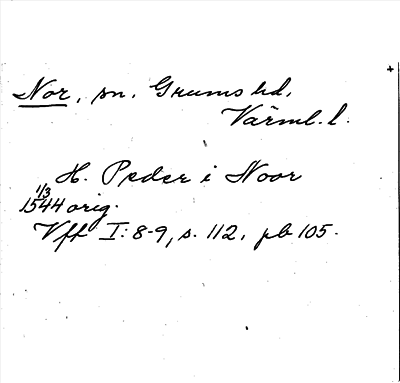 Nor, sn. Grums hd.
Värml. l.
H. Peder i Noor
1/3
1544 orig.
Vff I: 8-9, s. 112, pb 105.